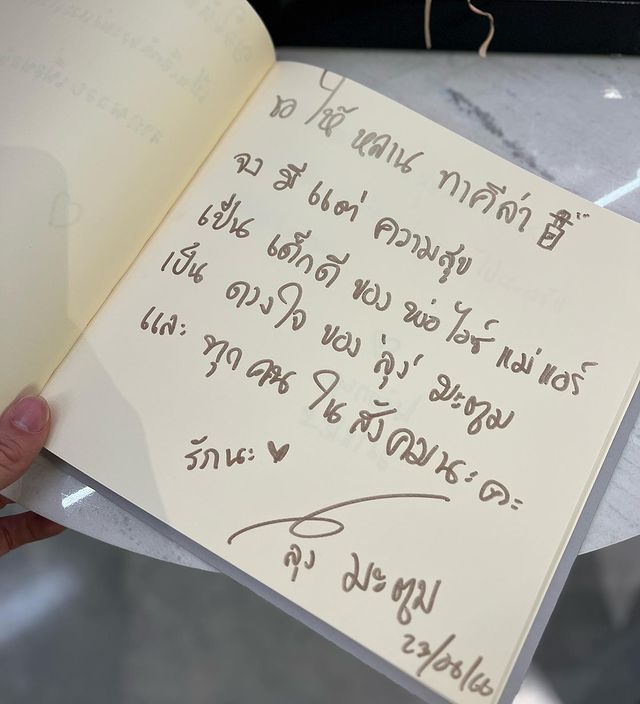 ขอ ให้ หลาน ทาคีล่า
จง มี แต่ ความสุข
เป็น เด็กดี ของ พ่อ ไอซ์ แม่ แอร์
เป็น ดวงใจ ของ "ลุง" มะตูม
และ ทุก คน ใน สังคมนะ คะ
รักนะ ♥
ลุง มะตูม
23/08/66